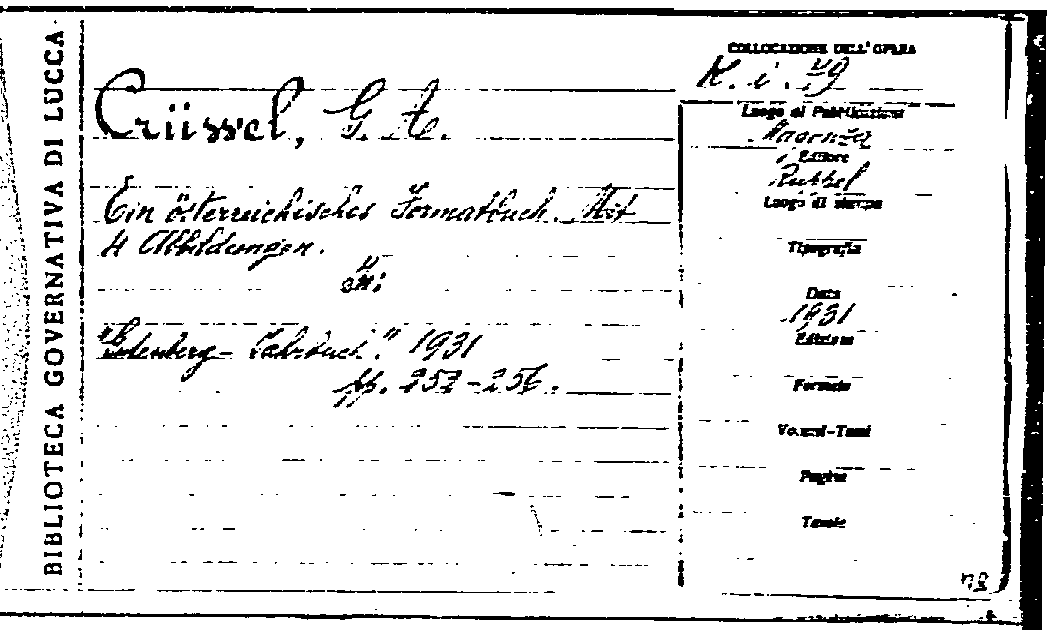 BIBLIOTECA GOVERNATIVA DI LUCCA
Crüssel, G. A.
Ein österreichisches Formatbuch. Mit
4 Abbildungen.
in:
"Gutenberg-Jahrbuch". 1931
pp. 252-256.
COLLOCAZIONE DELL'OPERA
K. i. 49
Luogo di Pubblicazione
Magonza
Editore
Ruppel
Luogo di stampa
Tipografia
Data
1931
Edizione
Formato
Volumi-Tomi
Pagine
Tavole